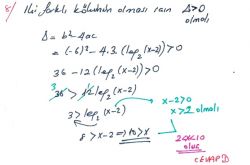 8/ İki farklı kökünün olması için Δ>0 olmalı
Δ = b² - 4ac
= (-6)² - 4.3 (log₂(x-2)) > 0
36 - 12 (log₂(x-2)) > 0
3
36 > 12 log₂(x-2)
3 > log₂(x-2)
8 > x-2 ⇒ 10 > x
x-2>0
x>2 olmalı
2<x<10
olur
CEVAP D